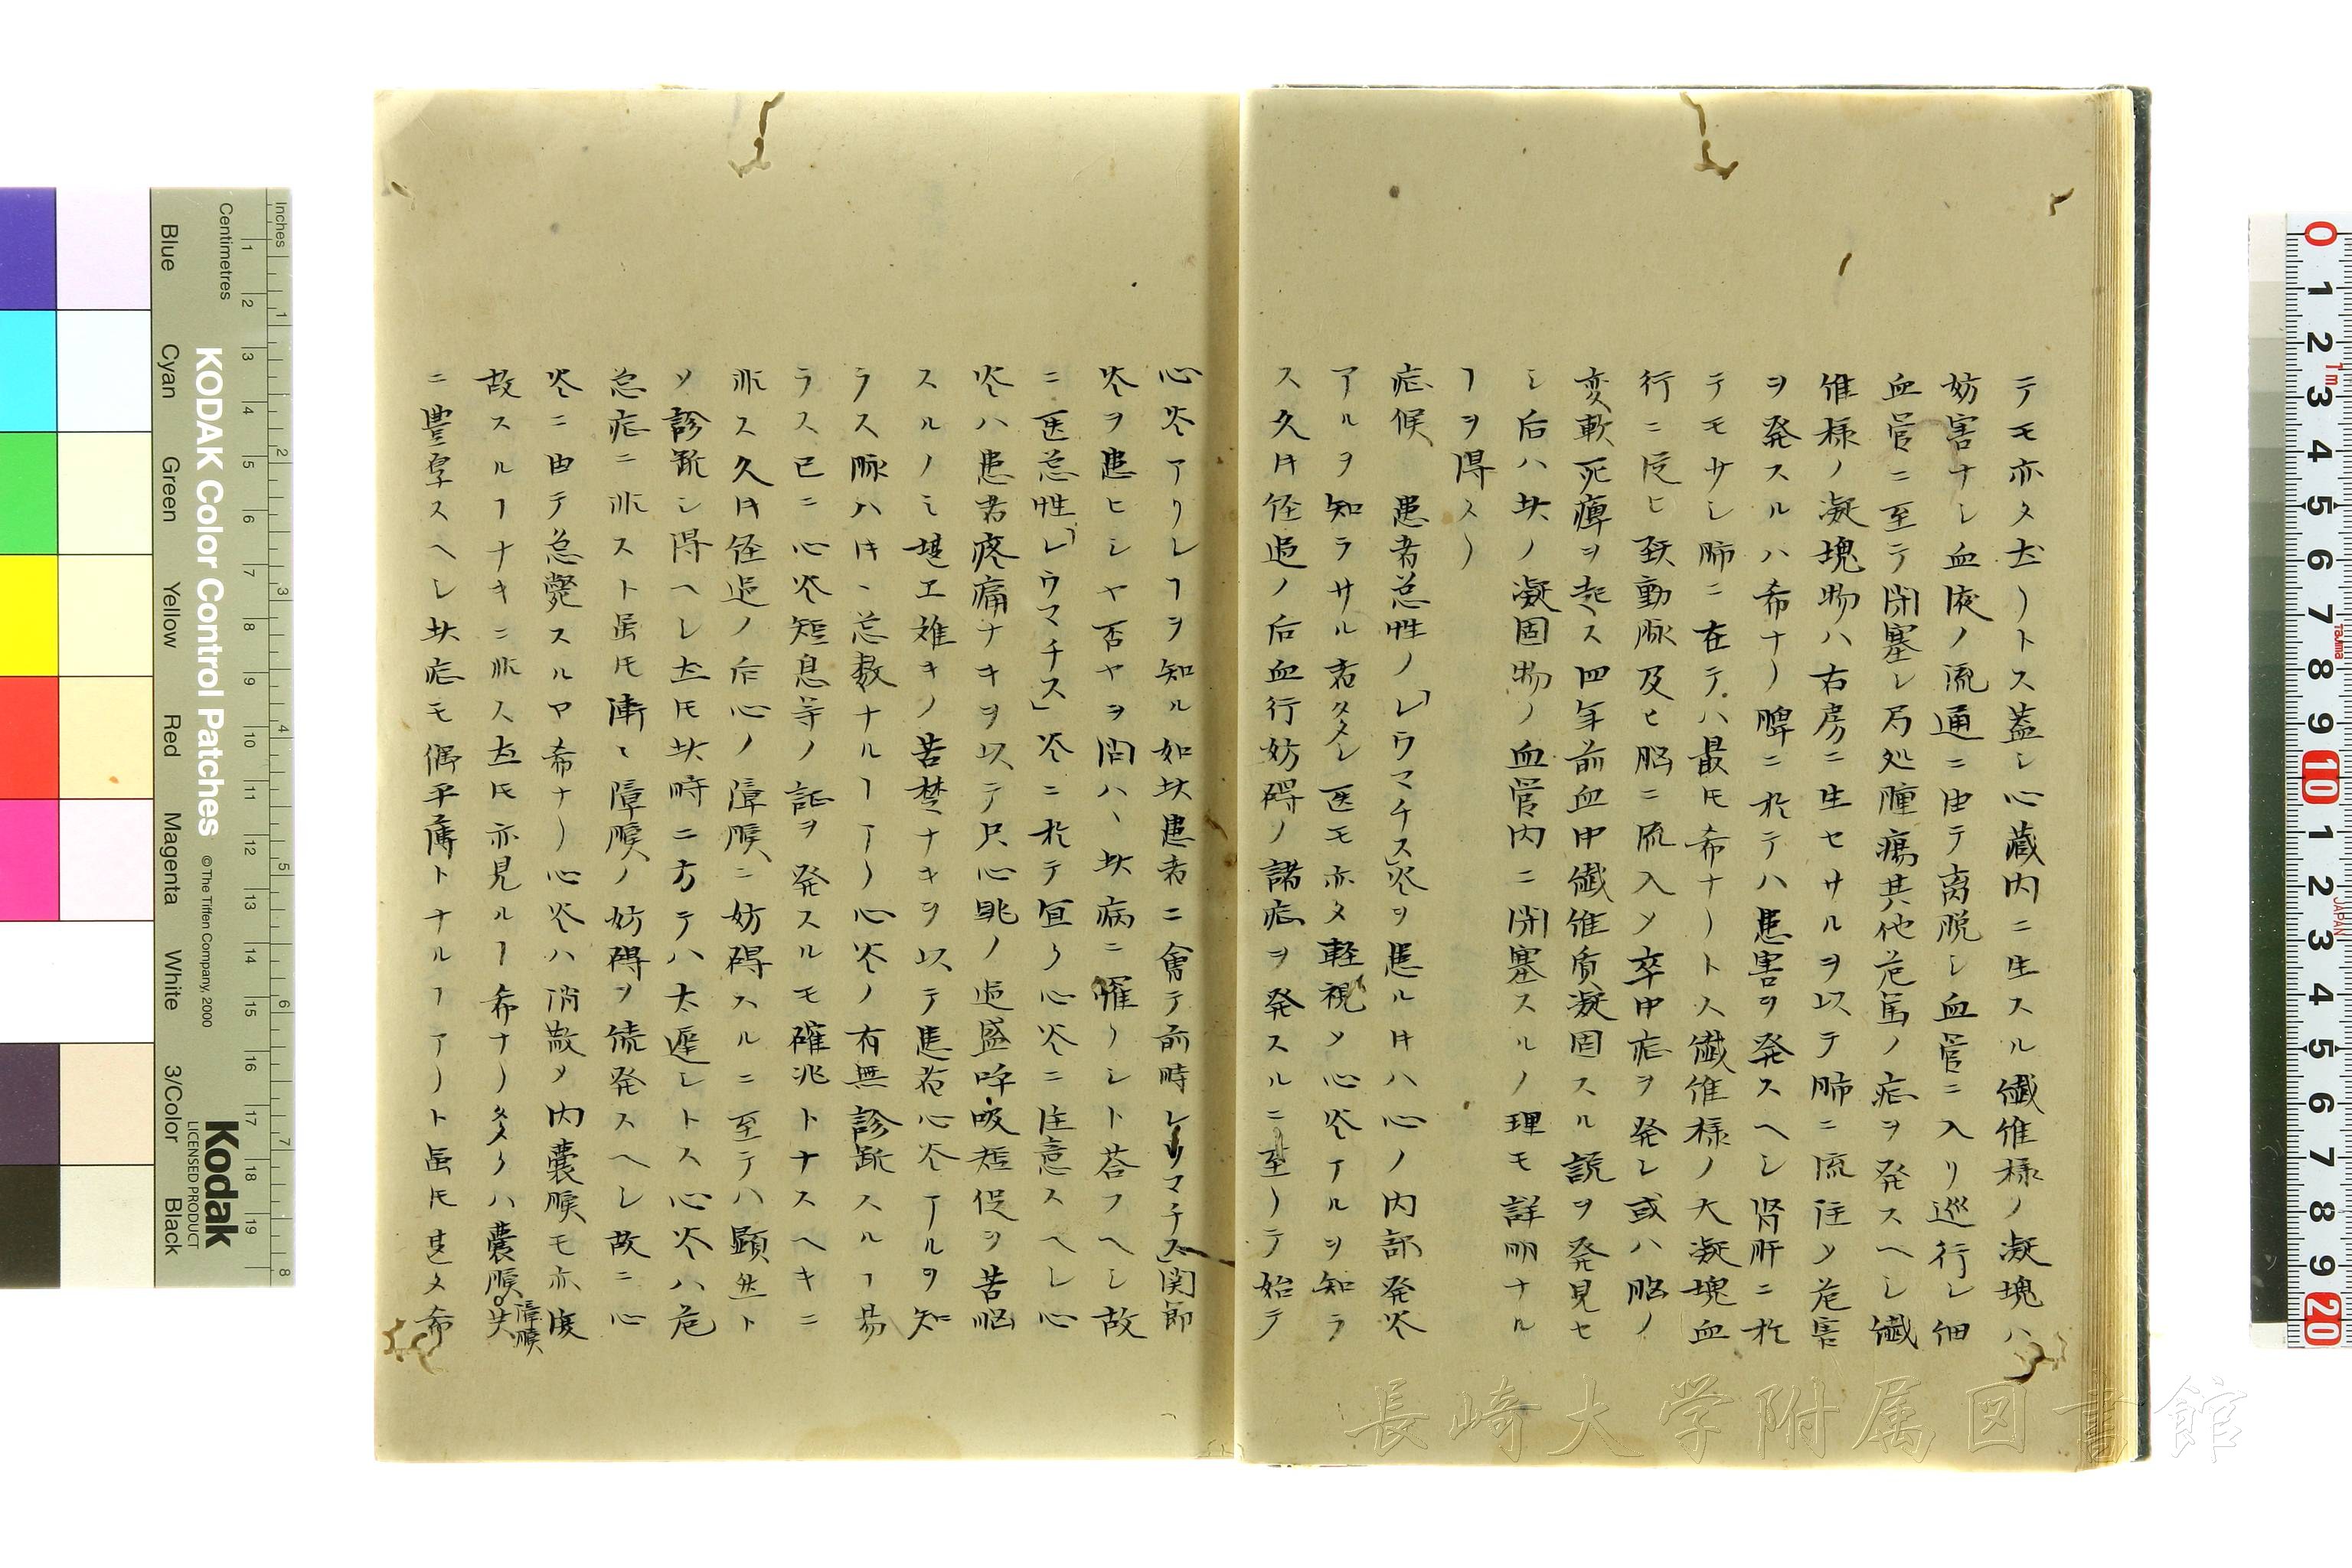 テモ亦タ大ナリトス蓋シ心藏内ニ生スル繊維様ノ凝塊ハ
妨害ナシ血液ノ流通ニ由テ离脱シ血管ニ入リ巡行シ細
血管ニ至テ閉塞シ局処腫瘍其他危篤ノ症ヲ発スヘシ繊
維様ノ凝塊物ハ右房ニ生セサルヲ以テ肺ニ流注メ危害
ヲ発スルハ希ナリ脾ニ於テハ患害ヲ発スヘシ腎肝ニ於
テモ少シ肺ニ在テハ最モ希ナリトス繊維様ノ大凝塊血
行ニ従ヒ頸動脉及ヒ脳ニ流入メ卒中症ヲ発シ或ハ脳ノ
変軟死痺ヲ起ス四年前血中繊維质凝固スル説ヲ発見セ
シ后ハ其ノ凝固物ノ血管内ニ閉塞スルノ理モ詳明ナル
ヿヲ得ヘリ
症候 患者急性ノ「レウマチス」炎ヲ患ルキハ心ノ内部発炎
アルヲ知ラサル者多シ医モ亦タ軽視メ心炎アルヲ知ラ
ス久キ経過ノ后血行妨碍ノ諸症ヲ発スルニ至リテ始テ
心炎アリシヿヲ知ル如此患者ニ會テ前時レウマチス」関節
炎ヲ患ヒシヤ否ヤヲ問ハヽ此病ニ罹リシト荅フヘシ故
ニ医急性「レウマチス」炎ニ於テ宜ク心炎ニ注意スヘシ心
炎ハ患者疼痛ナキヲ以テ只心眺ノ過盛呼吸短促ヲ苦悩
スルノミ堪エ難キノ苦楚ナキヲ以テ患者心炎アルヲ知
ラス脉ハ甘ヽ急数ナルヿアリ心炎ノ有無診断スルヿ易
ラス已ニ心炎短息等ノ証ヲ発スルモ確兆トナスヘキニ
非ス久キ経過ノ后心ノ障膜ニ妨碍スルニ至テハ顕然ト
メ診断シ得ヘシ左モ其時ニ方テハ太遅シトス心炎ハ危
急症ニ非スト虽モ漸ヽ障膜ノ妨碍ヲ続発スヘシ故ニ心
炎ニ由テ急斃スルヤ希ナリ心炎ハ消散メ内嚢膜モ亦復
故スルヿナキニ非ス左モ亦見ルヿ希ナリ多クハ嚢膜障膜共
ニ豊厚スヘシ此症モ偶平薄トナルヿアリト虽モ甚タ希
Inches
Centimetres
Blue
Cyan
Green
Yellow
Red
Magenta
White
3/Color
Black
KODAK Color Control Patches
© The Tiffen Company, 2000
Kodak
LICENSED PRODUCT
長崎大学附属図書館